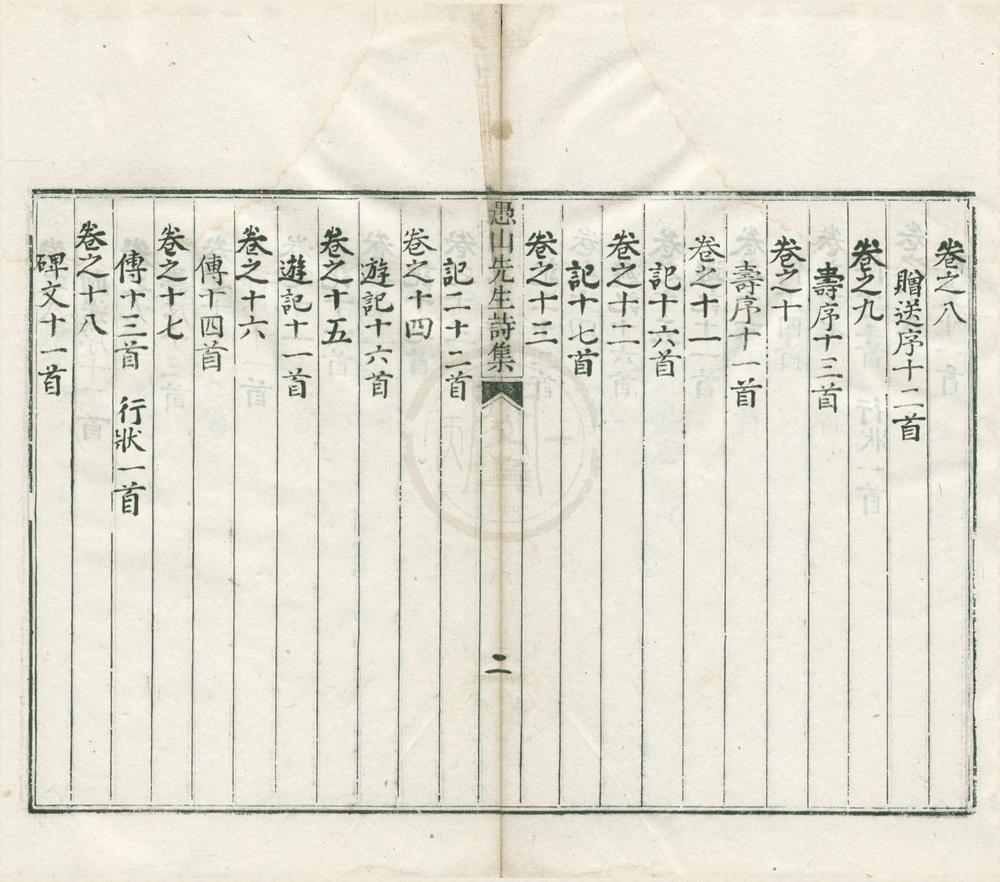 卷之八
贈送序十二首
卷之九
壽序十三首
卷之十
壽序十一首
卷之十一
記十六首
卷之十二
記十七首
卷之十三
愚山先生詩集
二
記二十二首
卷之十四
遊記十六首
卷之十五
遊記十一首
卷之十六
傳十四首
卷之十七
傳十三首 行狀一首
卷之十八
碑文十一首